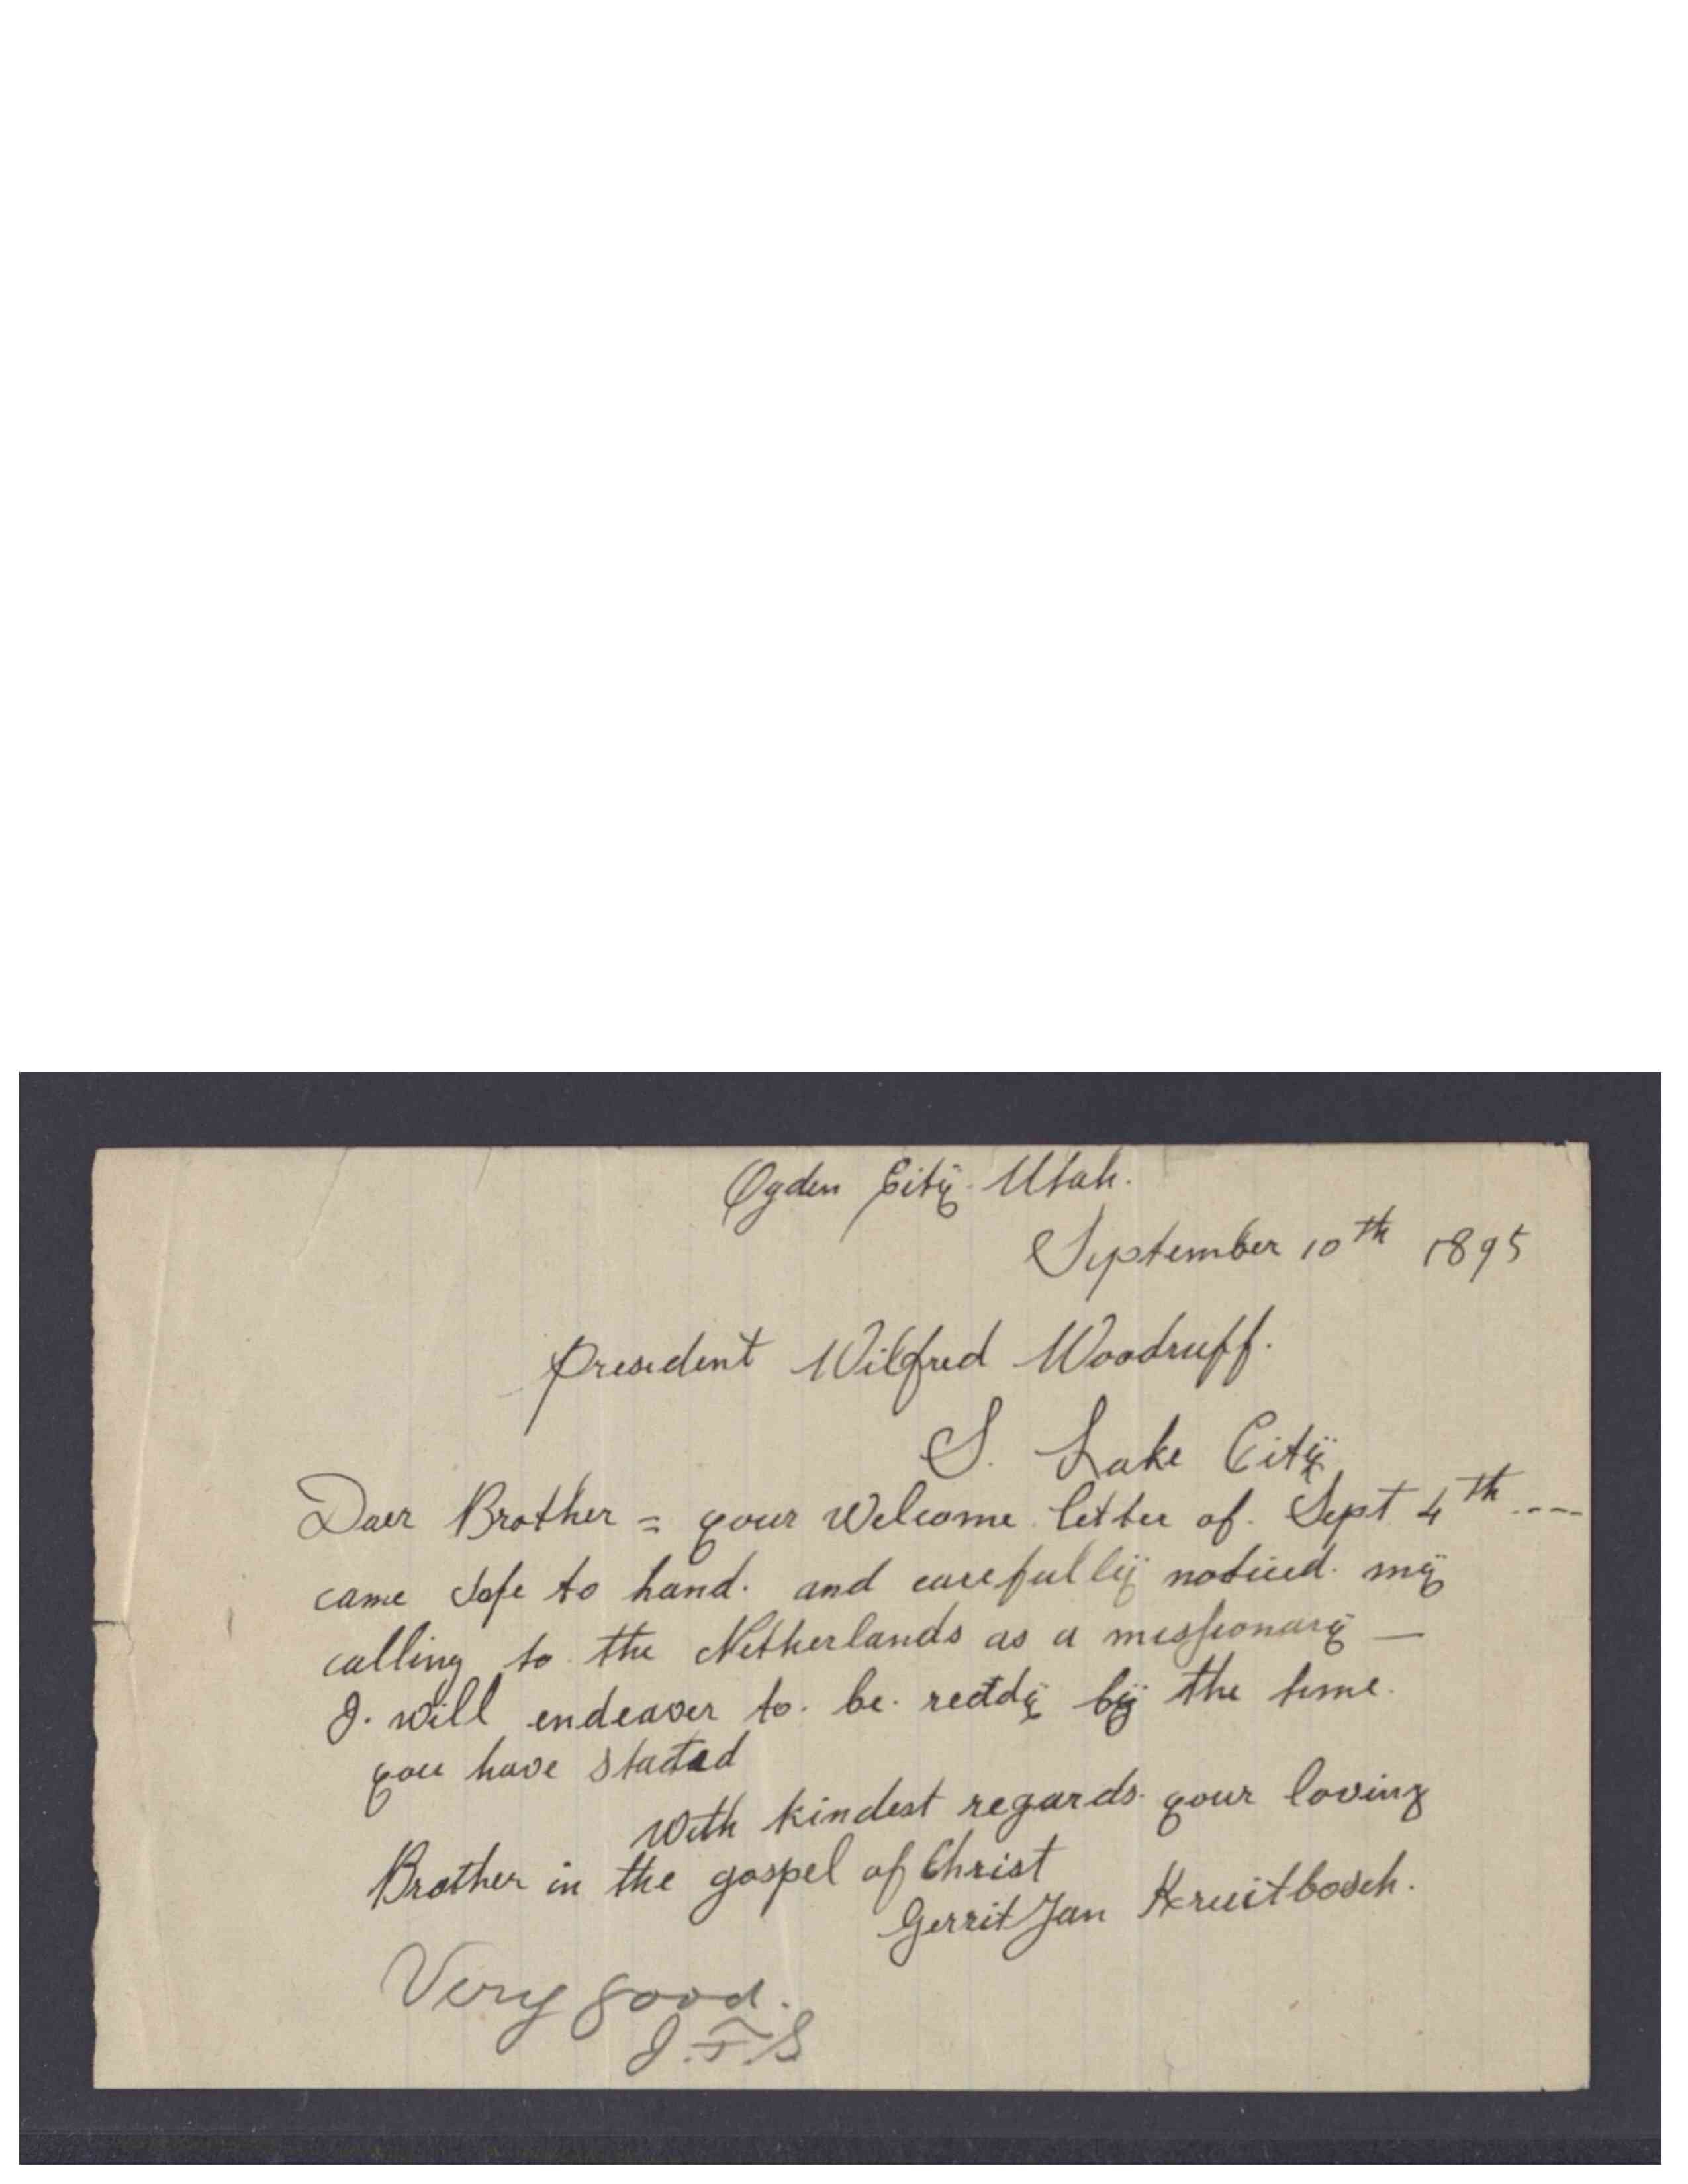 Ogden Citÿ. Utah.
September 10th 1895
President Wilfred Woodruff.
S. Lake Citÿ
Daer Brother = your Welcome letter of. Sept 4th ----
came safe to hand. and carefullÿ noticed. mÿ
calling to the Netherlands as a missionarÿ —
I. will endeaver to. be. readdÿ bÿ the time.
you have stated
with kindest regards. your loving
Brother in the gospel of Christ
Gerrit Jan Kruitbosch.
Very good.
J. F. S